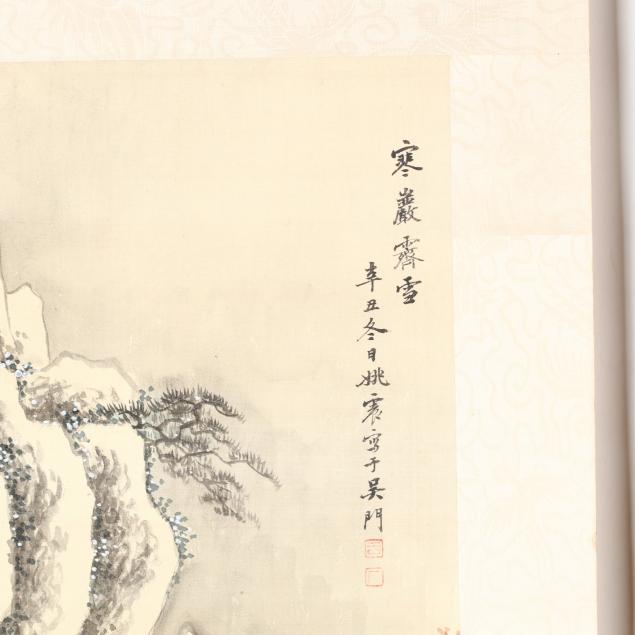 寒巖霽雪
辛丑冬日姚震寫于吳門